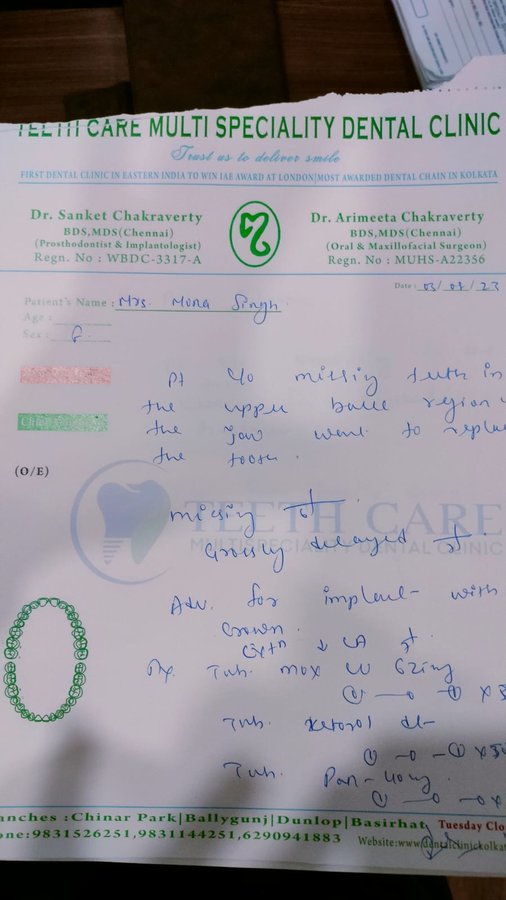 TEETH CARE MULTI SPECIALITY DENTAL CLINIC
Trust us to deliver smile
FIRST DENTAL CLINIC IN EASTERN INDIA TO WIN IAE AWARD AT LONDON|MOST AWARDED DENTAL CHAIN IN KOLKATA
Dr. Sanket Chakraverty
BDS,MDS(Chennai)
(Prosthodontist & Implantologist)
Regn. No : WBDC-3317-A
Dr. Arimeeta Chakraverty
BDS,MDS(Chennai)
(Oral & Maxillofacial Surgeon)
Regn. No : MUHS-A22356
Date : 03/04/23
Patient's Name : Mrs. Mona Singh
Age :
Sex : F
Pt c/o missing teeth in
the upper back region
the jaw want to repla
the tooth.
(O/E)
TEETH CARE
MULTISPECIALITY DENTAL CLINIC
missing 6
Grossly decayed
Adv. for implant with
crown
Extn ↓ LA
Rx. Tab. mox CV 625mg
1—0—1 X5
Tab. Ketorol dt
1—0—1 X5
Tab. Pan-40mg
1—0—0 X
anches :Chinar Park|Ballygunj|Dunlop|Basirhat, Tuesday Clo
one:9831526251,9831144251,6290941883 Website:www.dentalclinickolka